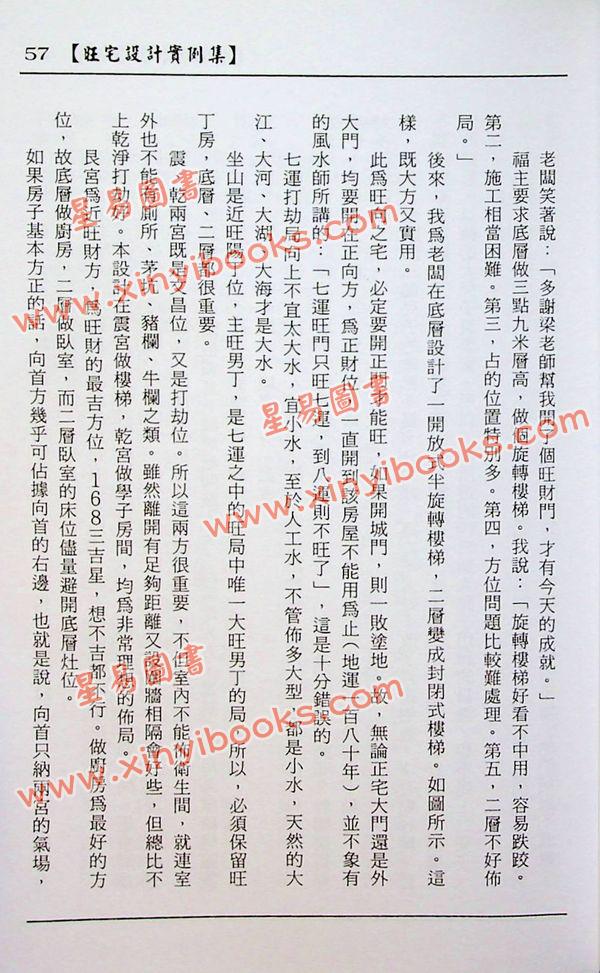 57 【旺宅設計實例集】
老闆笑著說：「多謝梁老師幫我開了個旺財門，才有今天的成就。」
福主要求底層做三點九米層高，做個旋轉樓梯。我說：「旋轉樓梯好看不中用，容易跌跤。
第二，施工相當困難。第三，占的位置特別多。第四，方位問題比較難處理。第五，二層不好佈
局。」
後來，我為老闆在底層設計了一開放式半旋轉樓梯，二層變成封閉式樓梯。如圖所示。這
樣，既大方又實用。
此為旺向之宅，必定要開正門才能旺，如果開城門，則一敗塗地。故，無論正宅大門還是外
大門，均要開在正向方，為正財位，一直開到該房屋不能用為止（地運一百八十年），並不象有
的風水師所講的：「七運旺門只旺七運，到八運則不旺了」，這是十分錯誤的。
七運打劫局向上不宜太大水，宜小水，至於人工水，不管佈多大型，都是小水，天然的大
江、大河、大湖、大海才是大水。
坐山是近旺陽丁位，主旺男丁，是七運之中的旺局中唯一大旺男丁的局，所以，必須保留旺
丁房，底層、二層都很重要。
震、乾兩宮既是文昌位，又是打劫位。所以這兩方很重要，不但室內不能佈衛生間，就連室
外也不能有廁所、茅坑、豬欄、牛欄之類。雖然離開有足夠距離又設圍牆相隔會好些，但總比不
上乾淨打劫好。本設計在震宮做樓梯，乾宮做學子房間，均為非常理想的佈局。
艮宮為近旺財方，為旺財的最吉方位，168三吉星，想不吉都不行。做廚房為最好的方
位，故底層做廚房，二層做臥室，而二層臥室的床位儘量避開底層灶位。
如果房子基本方正的話，向首方幾乎可佔據向首的右邊，也就是說，向首只納兩宮的氣場，
星易圖書
www.xinyibooks.com
星易圖書
www.xinyibooks.com
星易圖書
www.xinyibooks.com
星易圖書
www.xinyibooks.com